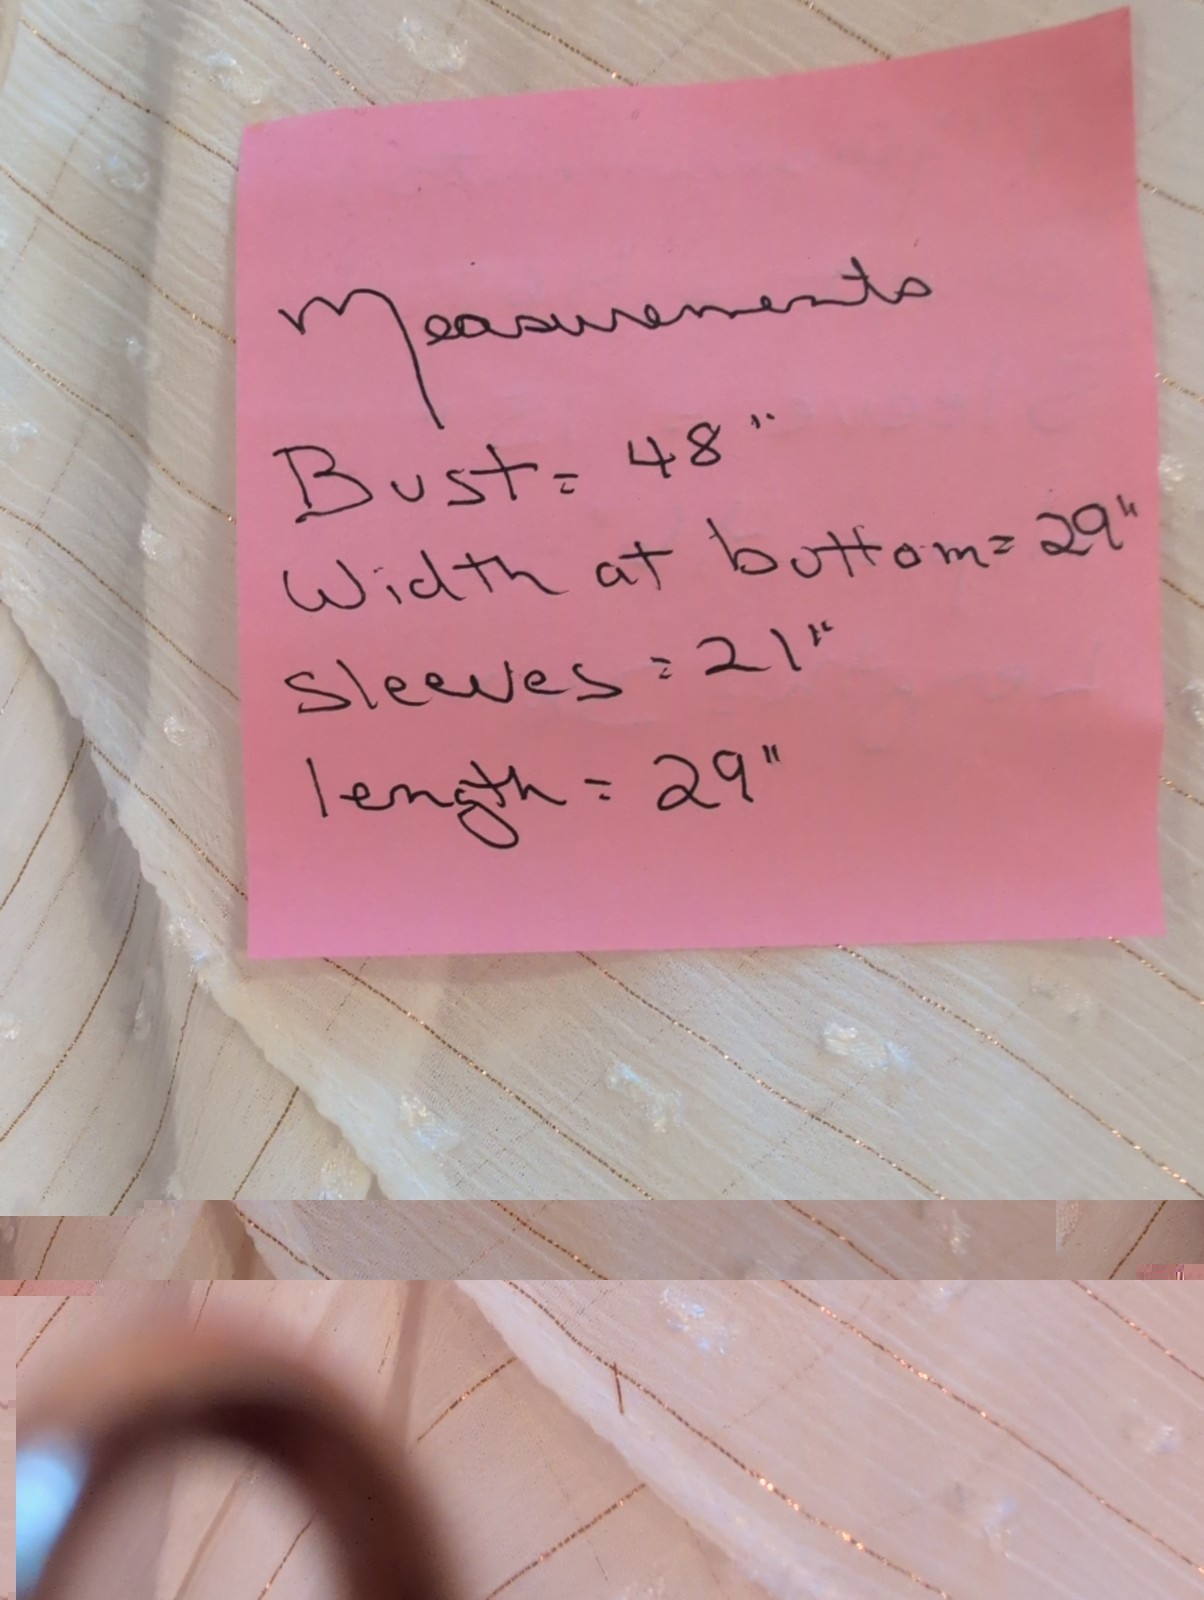 Measurements
Bust = 48"
Width at bottom = 29"
Sleeves = 21"
length = 29"